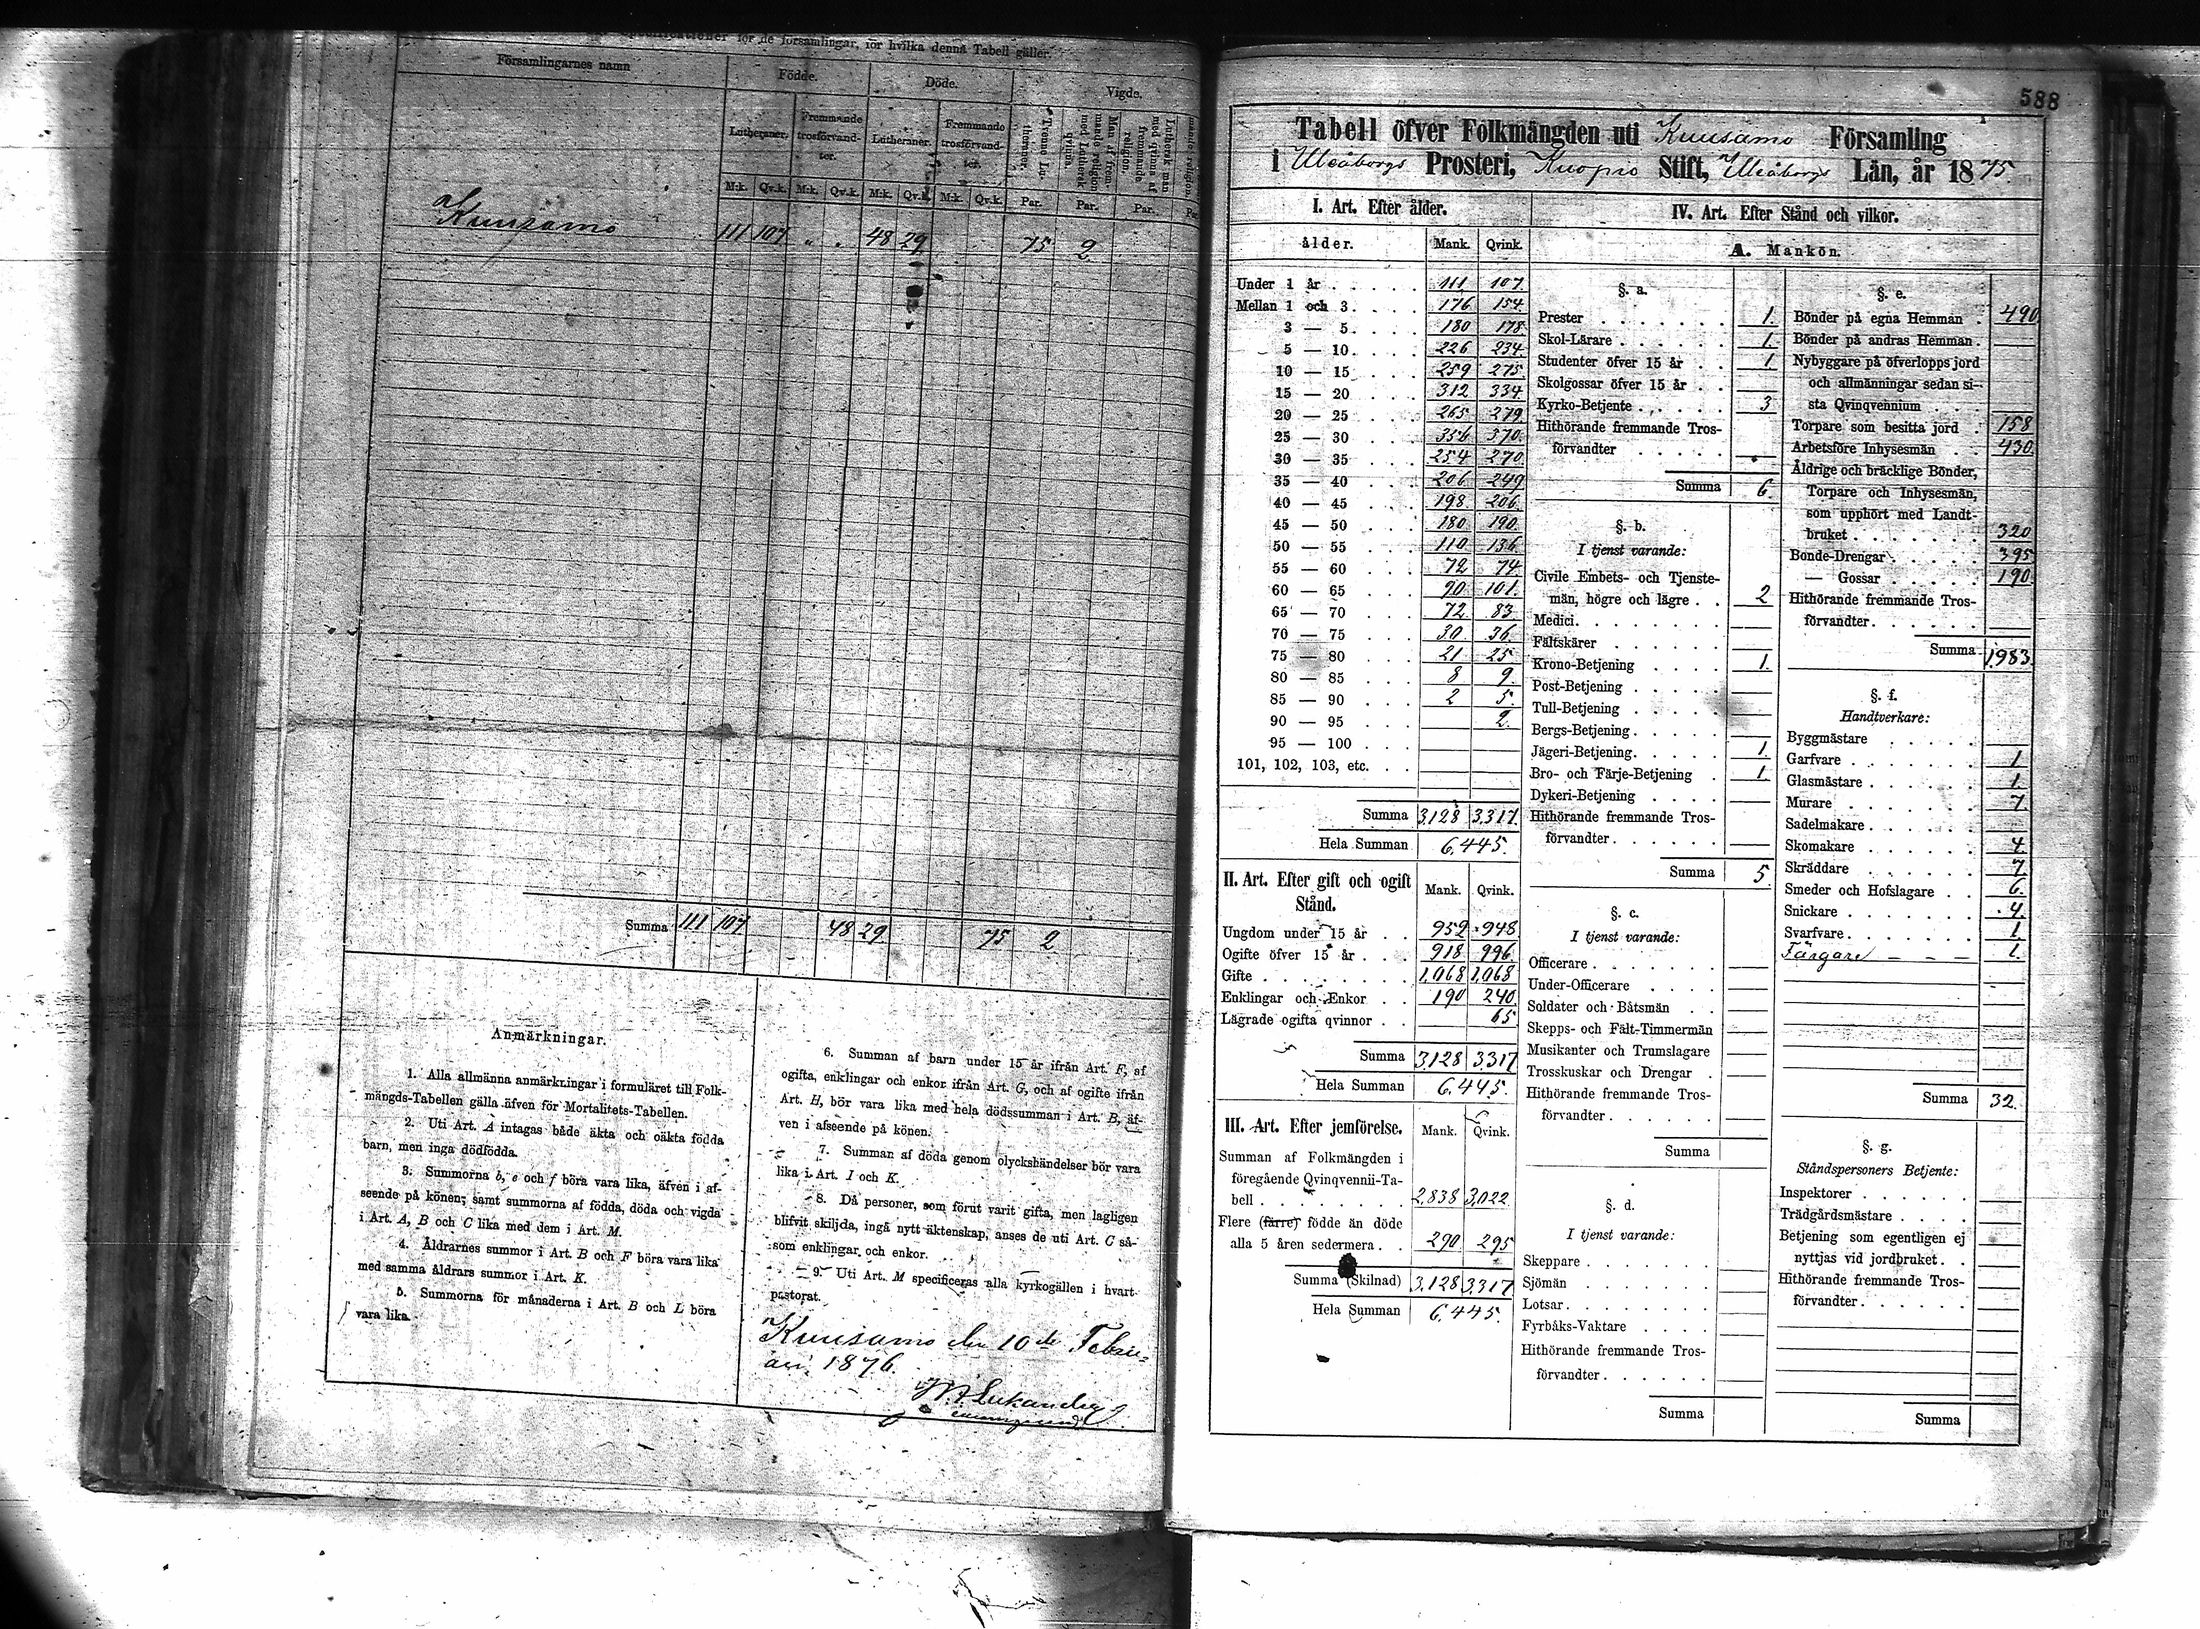 Specificationer för de församlingar, för hvilka denna Tabell gäller.
Församlingarnes namn
Födde.
Döde.
Vigde.
Lutheraner.
Fremmande trosförvand-ter.
Lutheraner.
Fremmande trosförvand-ter.
Tvenne Lu-theraner.
Man af frem-mande religion med Luthersk qvinna.
Luthersk man med qvinna af fremmande religion.
M:k. Qv.k. M:k. Qv.k. M:k. Qv.k. M:k. Qv.k. Par. Par. Par. Par.
Kuusamo 111 107 " " 48 29 75 2
Summa 111 107 48 29 75 2
Anmärkningar.
1. Alla allmänna anmärkningar i formuläret till Folk-
mängds-Tabellen gälla äfven för Mortalitets-Tabellen.
2. Uti Art. A intagas både äkta och oäkta födda
barn, men inga dödfödda.
3. Summorna b, e och f böra vara lika, äfven i af-
seende på könen; samt summorna af födda, döda och vigda
i Art. A, B och C lika med dem i Art. M.
4. Åldrarnes summor i Art. B och F böra vara lika
med samma åldrars summor i Art. K.
5. Summorna för månaderna i Art. B och L böra
vara lika.
6. Summan af barn under 15 år ifrån Art. F, af
ogifta, enklingar och enkor ifrån Art. G, och af ogifte ifrån
Art. H, bör vara lika med hela dödssumman i Art. B, äf-
ven i afseende på könen.
7. Summan af döda genom olyckshändelser bör vara
lika i Art. I och K.
8. Då personer, som förut varit gifta, men lagligen
blifvit skiljda, ingå nytt äktenskap, anses de uti Art. C så-
som enklingar och enkor.
9. Uti Art. M specificeras alla kyrkogällen i hvart
pastorat.
Kuusamo den 10de Febru-
ari 1876.
588
Tabell öfver Folkmängden uti Kuusamo Församling
i Uleåborgs Prosteri, Kuopio Stift, Uleåborgs Län, år 1875.
I. Art. Efter ålder.
ålder. Mank. Qvink.
Under 1 år 111 107
Mellan 1 och 3 176 154
3 — 5 180 178
5 — 10 226 234
10 — 15 259 275
15 — 20 312 334
20 — 25 265 279
25 — 30 356 370
30 — 35 254 270
35 — 40 206 249
40 — 45 198 206
45 — 50 180 190
50 — 55 110 136
55 — 60 72 74
60 — 65 90 101
65 — 70 72 83
70 — 75 30 36
75 — 80 21 25
80 — 85 8 9
85 — 90 2 5
90 — 95 2
95 — 100
101, 102, 103, etc.
Summa 3,128 3,317
Hela Summan 6,445.
II. Art. Efter gift och ogift Stånd. Mank. Qvink.
Ungdom under 15 år 952 948
Ogifte öfver 15 år 918 996
Gifte 1,068 1,068
Enklingar och Enkor 190 240
Lägrade ogifta qvinnor 65
Summa 3,128 3,317
Hela Summan 6,445.
III. Art. Efter jemförelse. Mank. Qvink.
Summan af Folkmängden i
föregående Qvinqvennii-Ta-
bell 2,838 3,022
Flere (färre) födde än döde
alla 5 åren sedermera 290 295
Summa (Skilnad) 3,128 3,317
Hela Summan 6,445.
IV. Art. Efter Stånd och vilkor.
A. Mankön.
§. a.
Prester 1.
Skol-Lärare 1.
Studenter öfver 15 år 1
Skolgossar öfver 15 år
Kyrko-Betjente 3
Hithörande fremmande Tros-
förvandter
Summa 6.
§. b.
I tjenst varande:
Civile Embets- och Tjenste-
män, högre och lägre 2
Medici
Fältskärer
Krono-Betjening 1.
Post-Betjening
Tull-Betjening
Bergs-Betjening
Jägeri-Betjening 1
Bro- och Färje-Betjening 1.
Dykeri-Betjening
Hithörande fremmande Tros-
förvandter
Summa 5
§. c.
I tjenst varande:
Officerare
Under-Officerare
Soldater och Båtsmän
Skepps- och Fält-Timmermän
Musikanter och Trumslagare
Trosskuskar och Drengar
Hithörande fremmande Tros-
förvandter
Summa
§. d.
I tjenst varande:
Skeppare
Sjömän
Lotsar
Fyrbåks-Vaktare
Hithörande fremmande Tros-
förvandter
Summa
§. e.
Bönder på egna Hemman 490
Bönder på andras Hemman
Nybyggare på öfverlopps jord
och allmänningar sedan si-
sta Qvinqvennium
Torpare som besitta jord 158
Arbetsföre Inhysesmän 430
Åldrige och bräcklige Bönder,
Torpare och Inhysesmän,
som upphört med Landt-
bruket 320
Bonde-Drengar 395
— Gossar 190
Hithörande fremmande Tros-
förvandter
Summa 1,983.
§. f.
Handtverkare:
Byggmästare
Garfvare 1
Glasmästare 1.
Murare 7
Sadelmakare
Skomakare 4.
Skräddare 7
Smeder och Hofslagare 6.
Snickare 4.
Svarfvare 1
Färgare — — — 1.
Summa 32.
§. g.
Ståndspersoners Betjente:
Inspektorer
Trädgårdsmästare
Betjening som egentligen ej
nyttjas vid jordbruket
Hithörande fremmande Tros-
förvandter
Summa